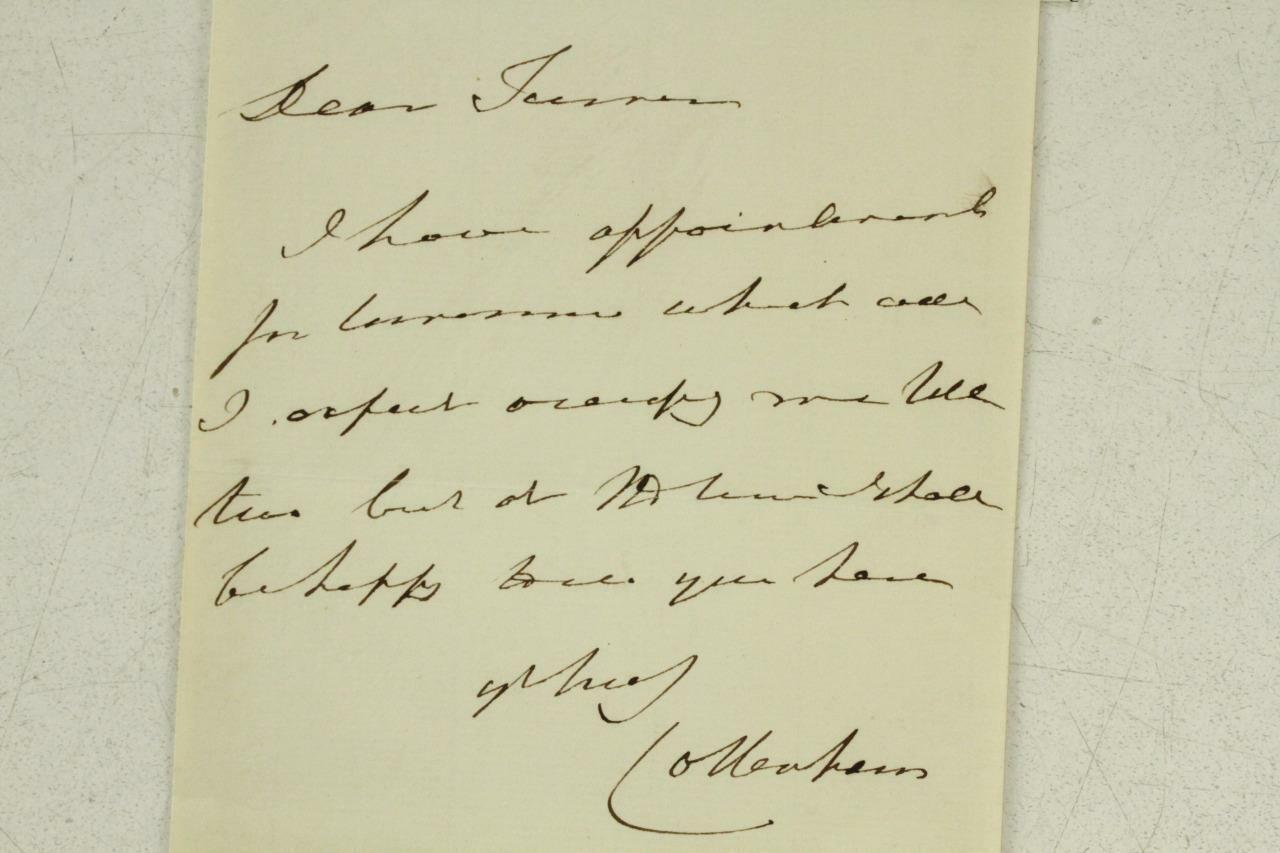 Dear Turner
I have appointments
for tomorrow which will
I expect occupy me till
two but at that time I shall
be happy to see you here
yrs truly
Cottenham